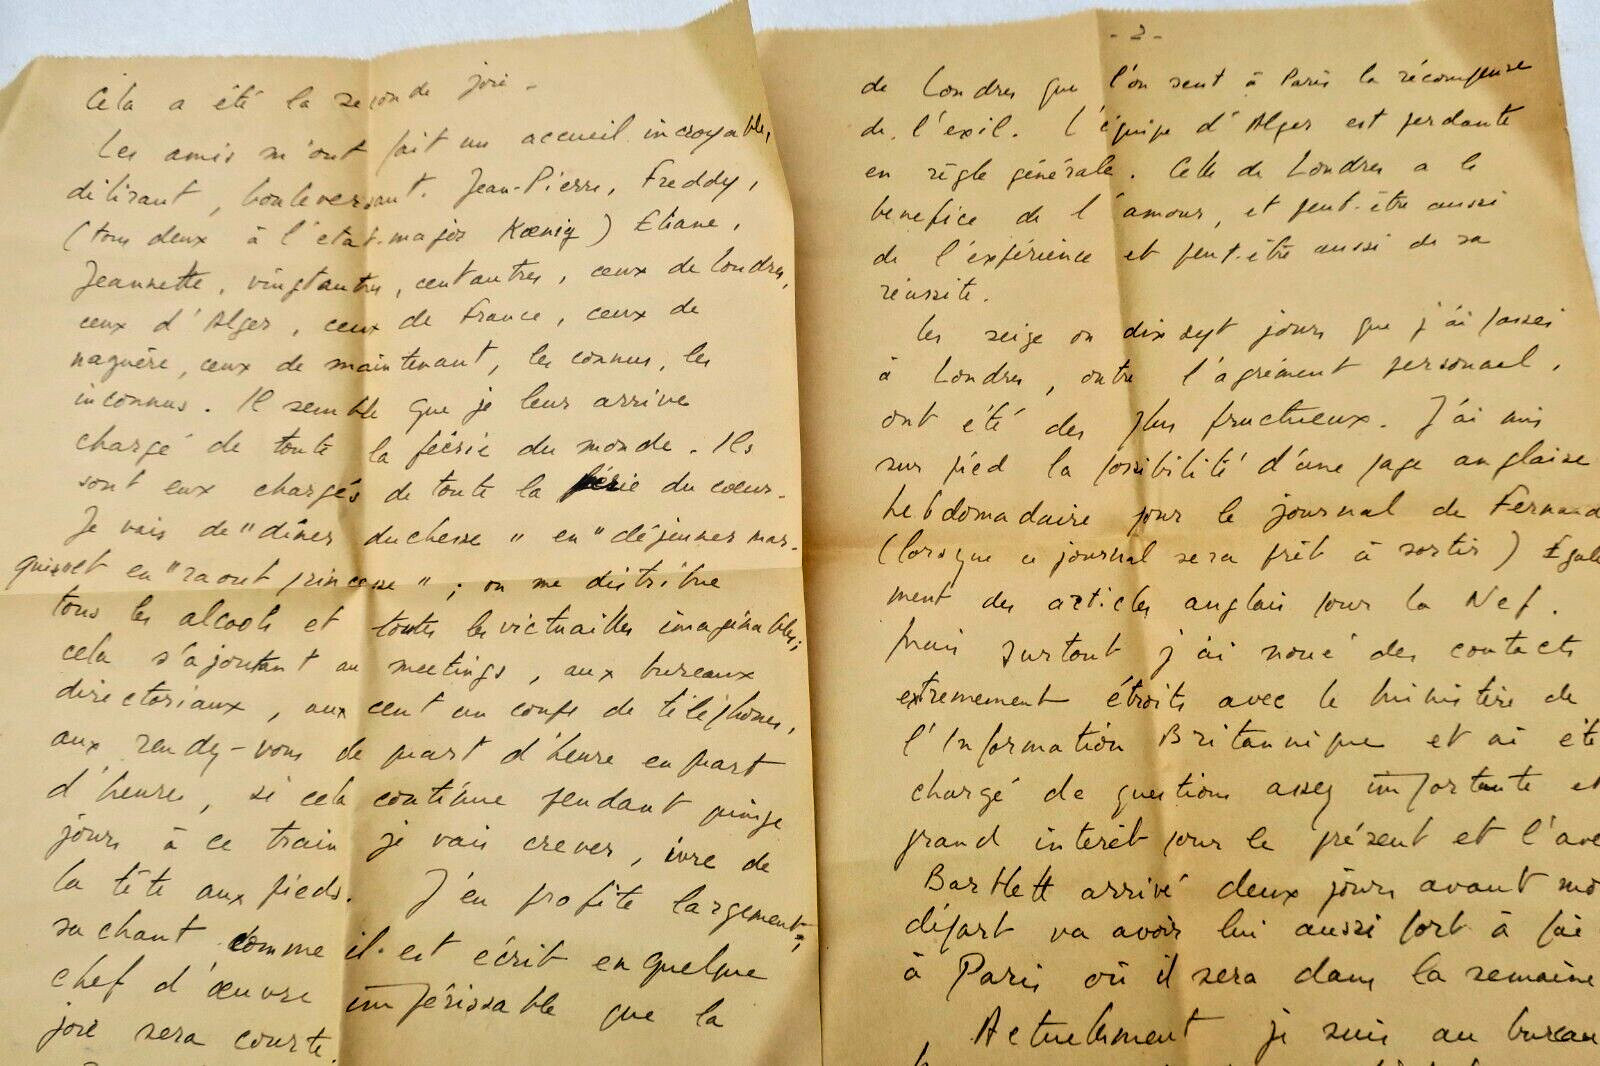 Cela a été la seconde joie -
Les amis m'ont fait un accueil incroyable,
délirant, bouleversant. Jean-Pierre, Freddy,
(tous deux à l'état-major Kœnig) Eliane,
Jeannette, vingt autres, cent autres, ceux de Londres,
ceux d'Alger, ceux de France, ceux de
naguère, ceux de maintenant, les connus, les
inconnus. Il semble que je leur arrive
chargé de toute la féérie du monde. Ils
sont eux chargés de toute la féerie du cœur.
Je vais de "dîner duchesse" en "déjeuner mar-
quise et en "raout princesse" ; on me distribue
tous les alcools et toutes les victuailles imaginables;
cela s'ajoutant au meetings, aux bureaux
directoriaux, aux cent un coups de téléphones,
aux rendez-vous de quart d'heure en quart
d'heures, si cela continue pendant quinze
jours à ce train je vais crever, ivre de
la tête aux pieds. J'en profite largement,
sachant comme il est écrit en quelque
chef d'œuvre impérissable que la
joie sera courte.
- 2 -
de Londres que l'on sent à Paris la récompense
de l'exil. L'équipe d'Alger est perdante
en règle générale. Celle de Londres a le
bénéfice de l'amour, et peut-être aussi
de l'expérience et peut-être aussi de sa
réussite.
Les seize ou dix sept jours que j'ai passés
à Londres, outre l'agrément personnel,
ont été des plus fructueux. J'ai mis
sur pied la possibilité d'une page anglaise
hebdomadaire pour le journal de Fernand
(lorsque ce journal sera prêt à sortir) Egale
ment des articles anglais pour la Nef.
Mais surtout j'ai noué des contacts
extremement étroits avec le Ministère de
l'Information Britannique et ai été
chargé de questions assez importante et
grand intérêt pour le présent et l'ave
Bartlett arrivé deux jours avant mo
départ va avoir lui aussi fort à fai
à Paris où il sera dans la semaine
Actuellement je suis au bureau